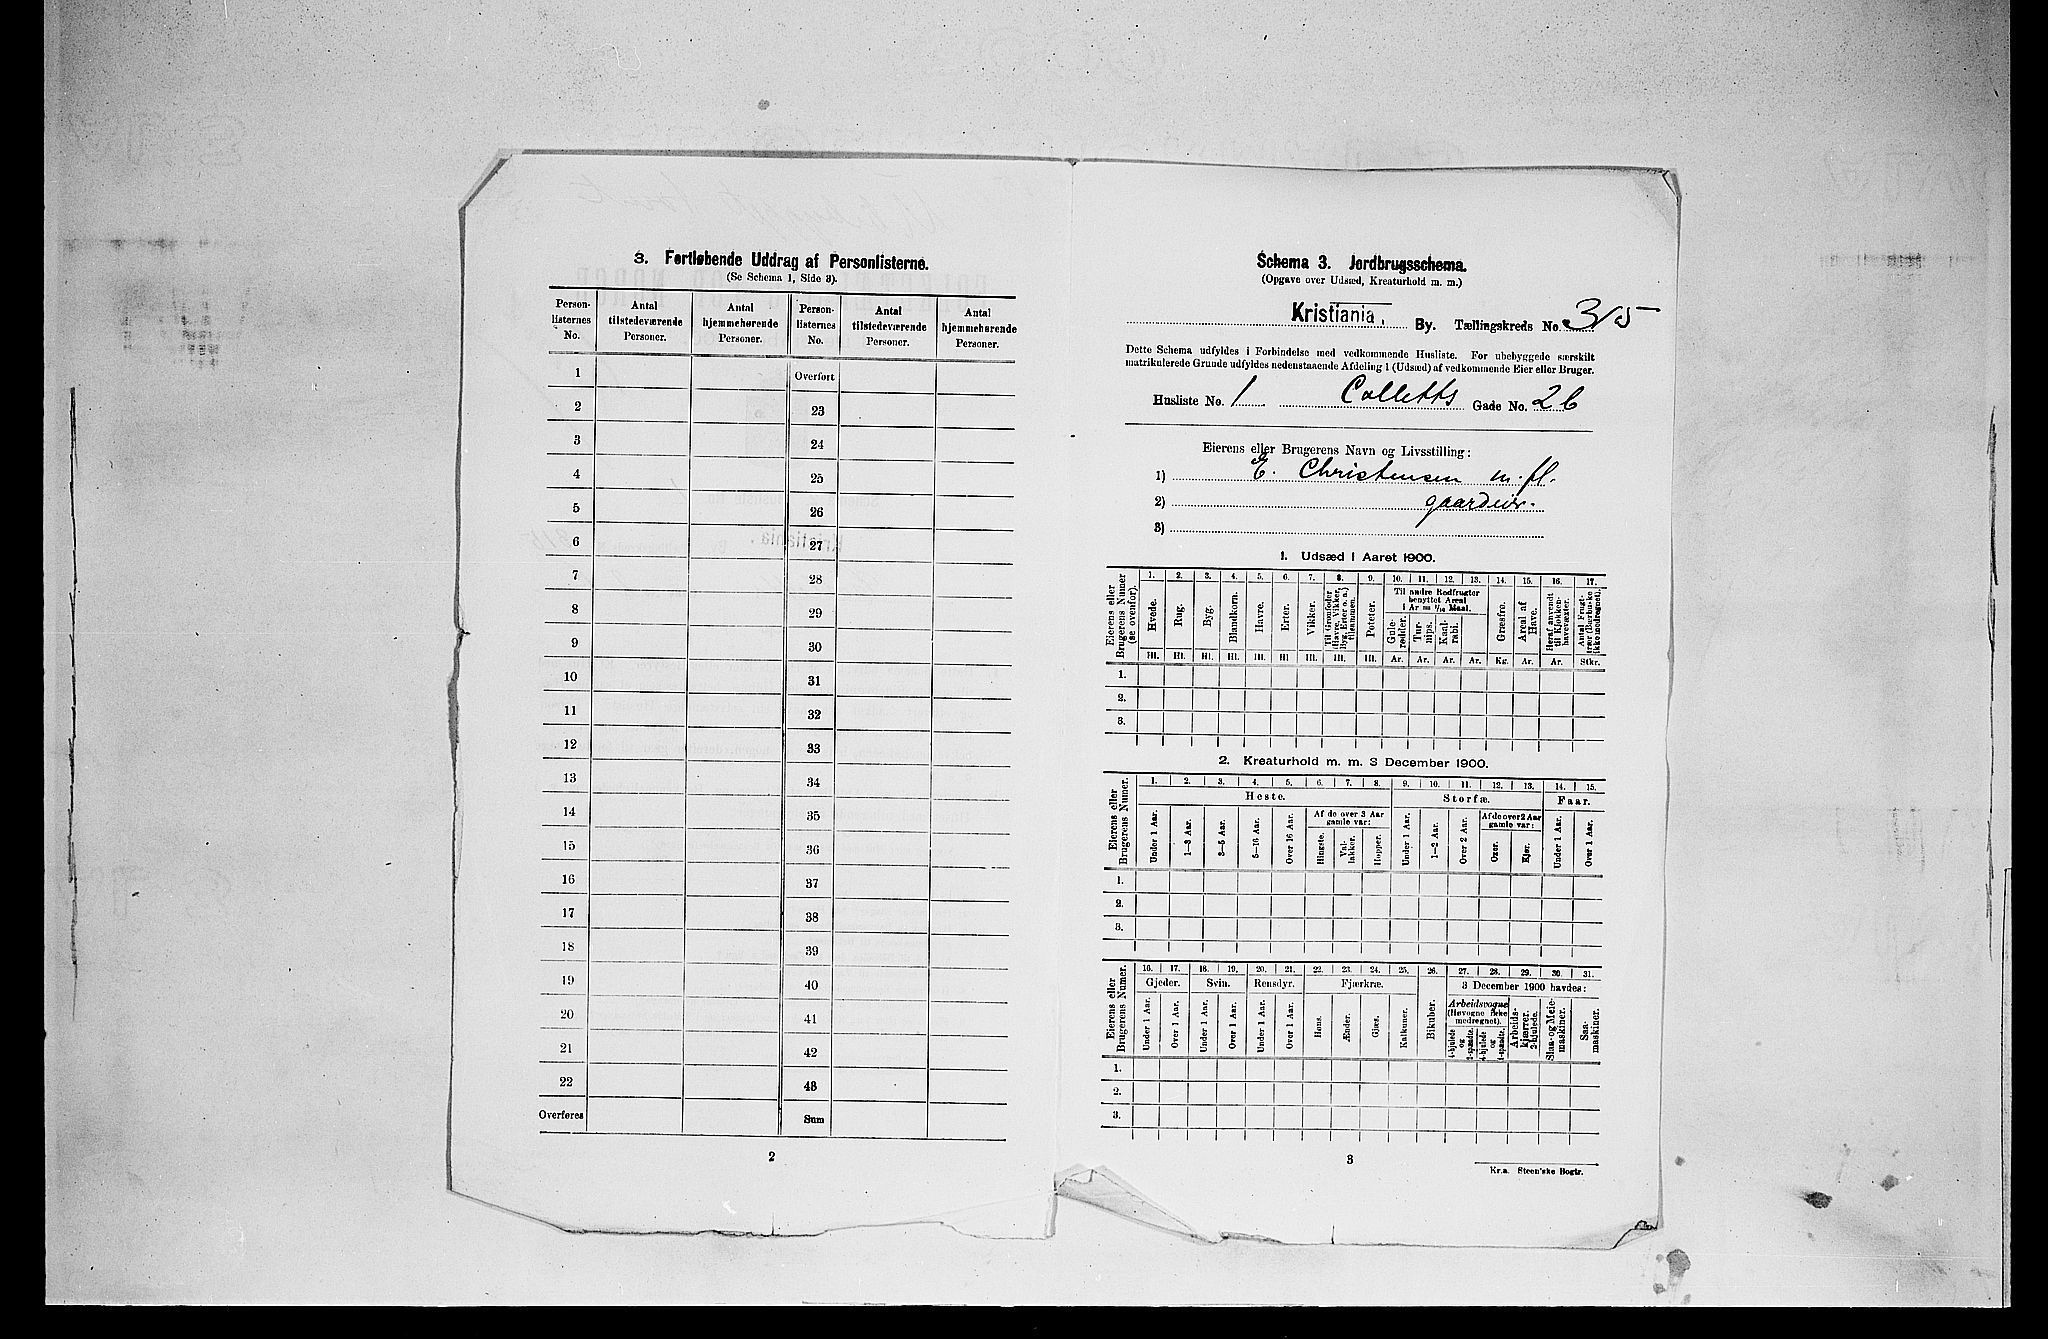 3. Fortløbende Uddrag af Personlisterne.
(Se Schema 1, Side 3).
Person-listernes No. Antal tilstedeværende Personer. Antal hjemmehørende Personer. Person-listernes No. Antal tilstedeværende Personer. Antal hjemmehørende Personer.
1 Overført
2 23
3 24
4 25
5 26
6 27
7 28
8 29
9 30
10 31
11 32
12 33
13 34
14 35
15 36
16 37
17 38
18 39
19 40
20 41
21 42
22 43
Overføres Sum
2
Schema 3. Jordbrugsschema.
(Opgave over Udsæd, Kreaturhold m. m.)
Kristiania. By. Tællingskreds No. 315
Dette Schema udfyldes i Forbindelse med vedkommende Husliste. For ubebyggede særskilt
matrikulerede Grunde udfyldes nedenstaaende Afdeling 1 (Udsæd) af vedkommende Eier eller Bruger.
Husliste No. 1 Colletts Gade No. 26
Eierens eller Brugerens Navn og Livsstilling:
1) E. Christensen m. fl.
2) gaardeier.
3)
1. Udsæd i Aaret 1900.
1. 2. 3. 4. 5. 6. 7. 8. 9. 10. 11. 12. 13. 14. 15. 16. 17.
Eierens eller Brugerens Numer (se ovenfor). Hvede. Rug. Byg. Blandkorn. Havre. Erter. Vikker. Til Grønfoder (Havre, Vikker, Byg, Erter o. a.) tilsammen. Poteter. Til andre Rodfrugter benyttet Areal i Ar = 1/10 Maal. Gule-rødder. Tur-nips. Kaal-rabi. Græsfrø. Areal af Have. Heraf anvendt til Kjøkken-havevæxter. Antal Frugt-trær (Buskene ikke medregnet).
Hl. Hl. Hl. Hl. Hl. Hl Hl. Hl. Hl. Ar. Ar. Ar. Ar. Kg. Ar. Ar. Stkr.
1.
2.
3.
2. Kreaturhold m. m. 3 December 1900.
1. 2. 3. 4. 5. 6. 7. 8. 9. 10. 11. 12. 13. 14. 15.
Eierens eller Brugerens Numer. Heste. Storfæ. Faar.
Af de over 3 Aar gamle var: Af de over 2 Aar gamle var:
Under 1 Aar. 1—3 Aar. 3—5 Aar. 5—16 Aar. Over 16 Aar. Hingste. Val-lakker. Hopper. Under 1 Aar. 1—2 Aar. Over 2 Aar. Oxer. Kjør. Under 1 Aar. Over 1 Aar.
1.
2.
3.
16. 17. 18. 19. 20. 21. 22. 23. 24. 25. 26. 27. 28. 29. 30. 31.
Eierens eller Brugerens Numer. Gjeder. Svin. Rensdyr. Fjærkræ. Bikuber. 3 December 1900 havdes:
Arbeidsvogne (Høvogne ikke medregnet).
Under 1 Aar. Over 1 Aar. Under 1 Aar. Over 1 Aar. Under 1 Aar. Over 1 Aar. Høns. Ænder. Gjæs. Kalkuner. 4-hjulede og 2-spændte. 4-hjulede og 1-spændte. Arbeids-kjærrer, 2-hjulede. Slaa- og Meie-maskiner. Saa-maskiner.
1.
2.
3.
3
Kr.a. Steen'ske Bogtr.